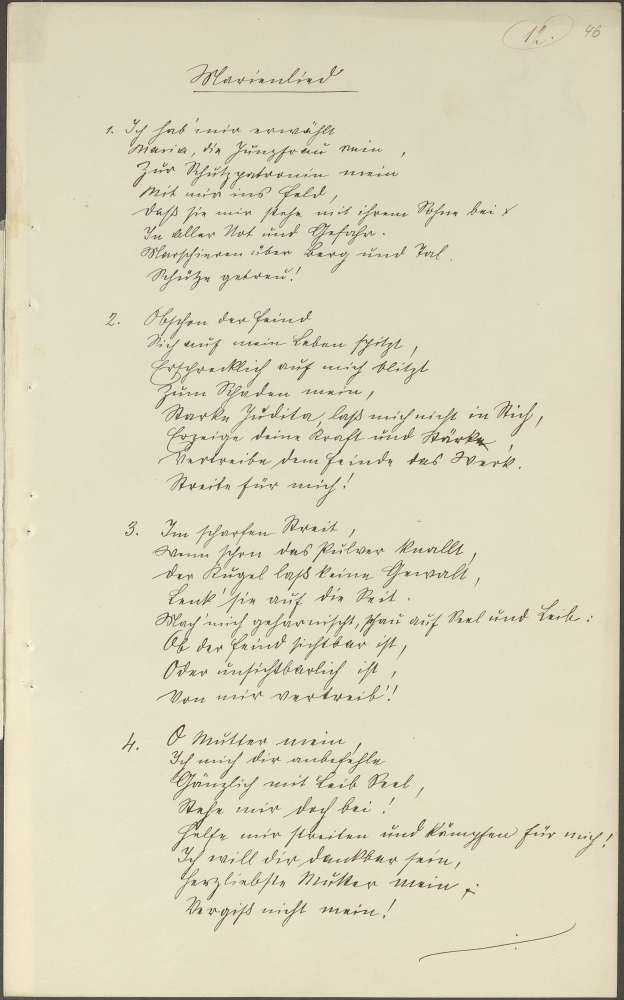 12. 46
Marienlied
1. Ich hab' mir erwählt
Maria, die Jungfrau rein,
Zur Schutzpatronin mein
Mit mir ins Feld,
Daß sie mir stehe mit ihrem Sohne bei
In aller Not und Gefahr.
Marschieren über Berg und Tal.
Schütze getreu!
2. Obschon der Feind
Sich auf mein Leben spitzt,
Erschrecklich auf mich blitzt
Zum Schaden mein,
Starke Judita, laß mich nicht in Stich,
Erzeige deine Kraft und Stärke,
Vertreibe dem Feinde das Werk.
Streite für mich!
3. Im scharfen Streit,
Wenn schon das Pulver knallt,
Der Kugel laß keine Gewalt,
Lenk' sie auf die Seit.
Mach' mich geharnischt, schau auf Seel und Leib:
Ob der Feind sichtbar ist,
Oder unsichtbarlich ist,
Von mir vertreib'!
4. O Mutter mein,
Ich mich dir anbefehle
Gänzlich mit Leib Seel,
Stehe mir doch bei!
Helfe mir streiten und kämpfen für mich!
Ich will dir dankbar sein,
Herzliebste Mutter mein,
Vergiß nicht mein!